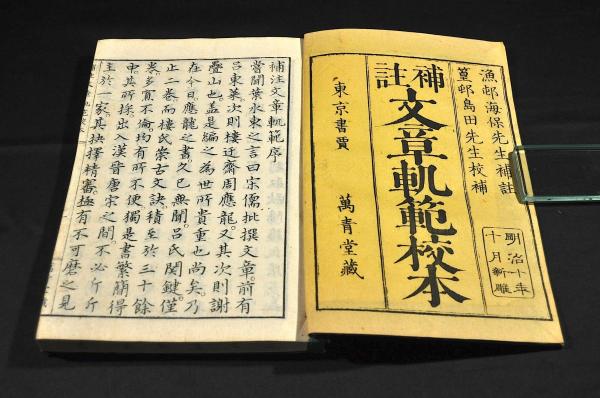 漁邨海保先生補註
篁邨島田先生校補
明治十年
十月新雕
補註
文章軌範校本
東京書賈 萬青堂藏
補注文章軌範序
嘗聞葉永東之言曰宋儒批撰文章。前有
呂東莱。次則樓迂齋周應龍。又其次則謝
疊山也。盖是編之為世所貴重也尚矣。乃
在今日應龍之書。久已無聞。呂氏関鍵。僅
止二巻。而樓氏崇古文訣。積至於三十餘
巻。多寡不倫。均有所不便。獨是書繁簡得
中。其所採。出入漢晉唐宋之間。不必斤斤
主於一家。其抉擇精審。極有不可磨之見